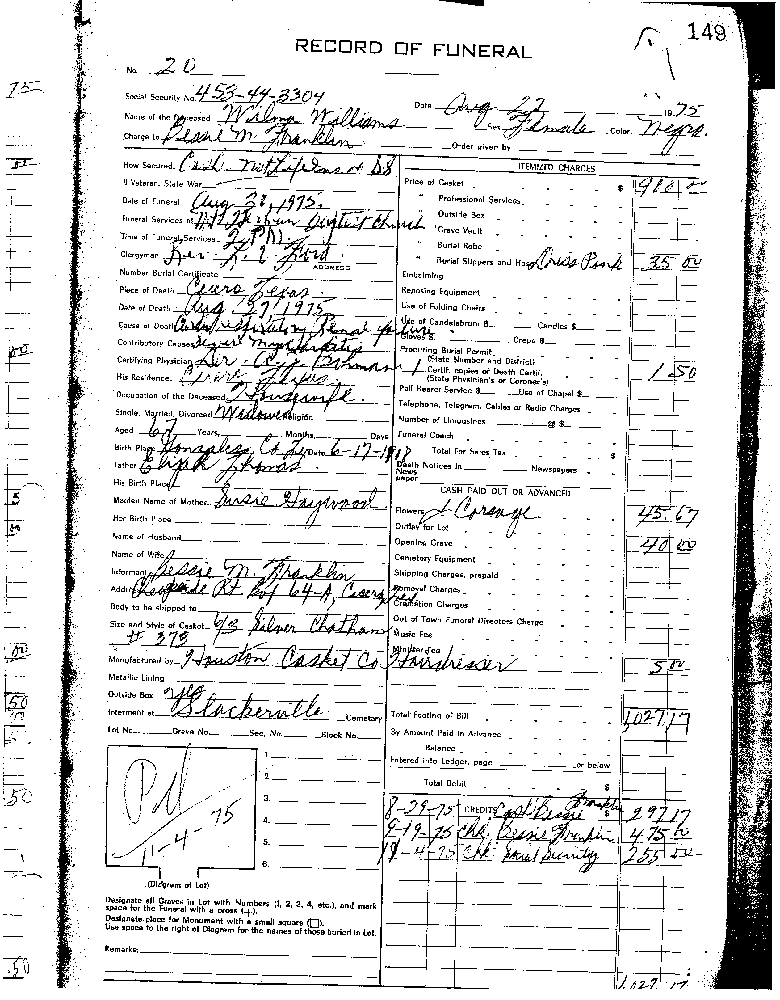 149
RECORD OF FUNERAL
No. 20
Social Security No. 453-44-3304
Date Aug 27 1975
Name of the Deceased Wilma Williams Sex Female Color Negro.
Charge to Bessie M. Franklin Order given by
How Secured Cash
If Veteran, State War
Date of Funeral Aug 28, 1975.
Funeral Services at Baptist Church
Time of Funeral Services 2 P.M.
Clergyman Rev. Ford
ADDRESS
Number Burial Certificate
Place of Death Cuero Texas
Date of Death Aug 27 1975
Cause of Death Cardiorespiratory Renal failure
Contributory Causes
Certifying Physician Dr.
His Residence Cuero Texas
Occupation of the Deceased Housewife
Single, Married, Divorced Widowed Religion
Aged 67 Years, Months, Days
Birth Place Gonzales Co. Date 6-17-
Father Elijah Thomas
His Birth Place
Maiden Name of Mother Susie Haywood
Her Birth Place
Name of Husband
Name of Wife
Informant Bessie M. Franklin
Address Rt. Box 64-A, Cuero
Body to be shipped to
Size and Style of Casket 6/3 Silver Chatham
# 373
Manufactured by Houston Casket Co
Metallic Lining
Outside Box
Interment at Slackerville Cemetery
Lot No. Grave No. Sec. No. Block No.
1.
2.
3.
4.
5.
6.
Pd
11-4-75
(Diagram of Lot)
Designate all Graves in Lot with Numbers (1, 2, 3, 4, etc.), and mark
space for the Funeral with a cross (+).
Designate place for Monument with a small square (□).
Use space to the right of Diagram for the names of those buried in Lot.
Remarks:
ITEMIZED CHARGES
Price of Casket $ 910 00
" Professional Services
" Outside Box
" Grave Vault
" Burial Robe
" Burial Slippers and Hose Dress Pink 35 00
Embalming
Reposing Equipment
Use of Folding Chairs
Use of Candelabrum $ Candles $
Gloves $ Crepe $
Procuring Burial Permit
(State Number and District)
1 Certif. copies of Death Certif. 1 50
(State Physician's or Coroner's)
Pall Bearer Service $ Use of Chapel $
Telephone, Telegram, Cables or Radio Charges
Number of Limousines @ $
Funeral Coach
Total For Sales Tax $
Death Notices in Newspapers
News paper
CASH PAID OUT OR ADVANCED
Flowers Corsage 45 67
Outlay for Lot
Opening Grave 40 00
Cemetery Equipment
Shipping Charges, prepaid
Removal Charges
Cremation Charges
Out of Town Funeral Directors Charge
Music Fee
Minister Fee
Hairdresser 5 00
Total Footing of Bill 1,027 17
By Amount Paid in Advance
Balance
Entered into Ledger, page or below
Total Debit $
8-29-75 CREDITS Cash Bessie Franklin $ 297 17
9-19-75 Chk. Bessie Franklin 475 00
11-4-75 Chk Social Security 255 00
1,027 17